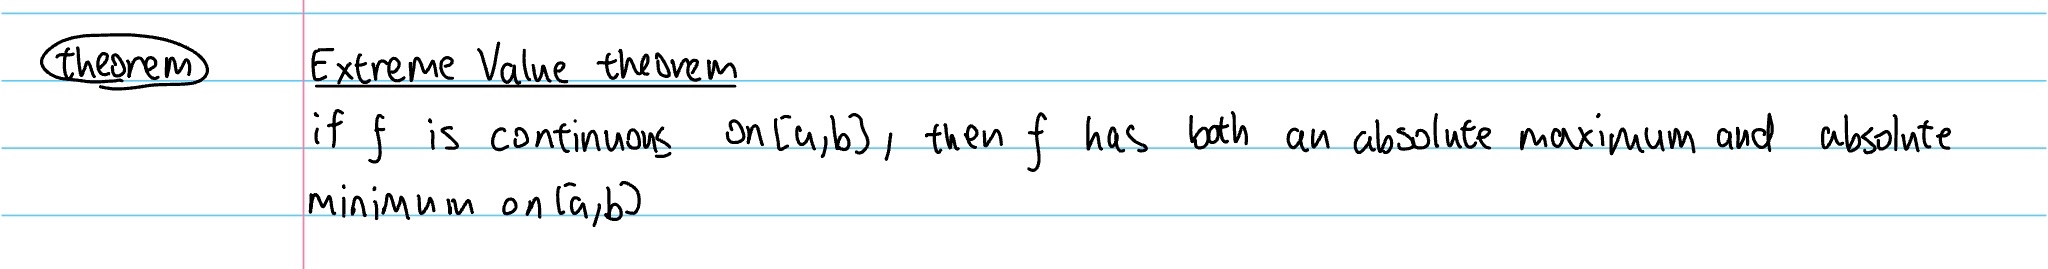 theorem
Extreme Value theorem
if f is continuous on [a,b], then f has both an absolute maximum and absolute
minimum on [a,b]